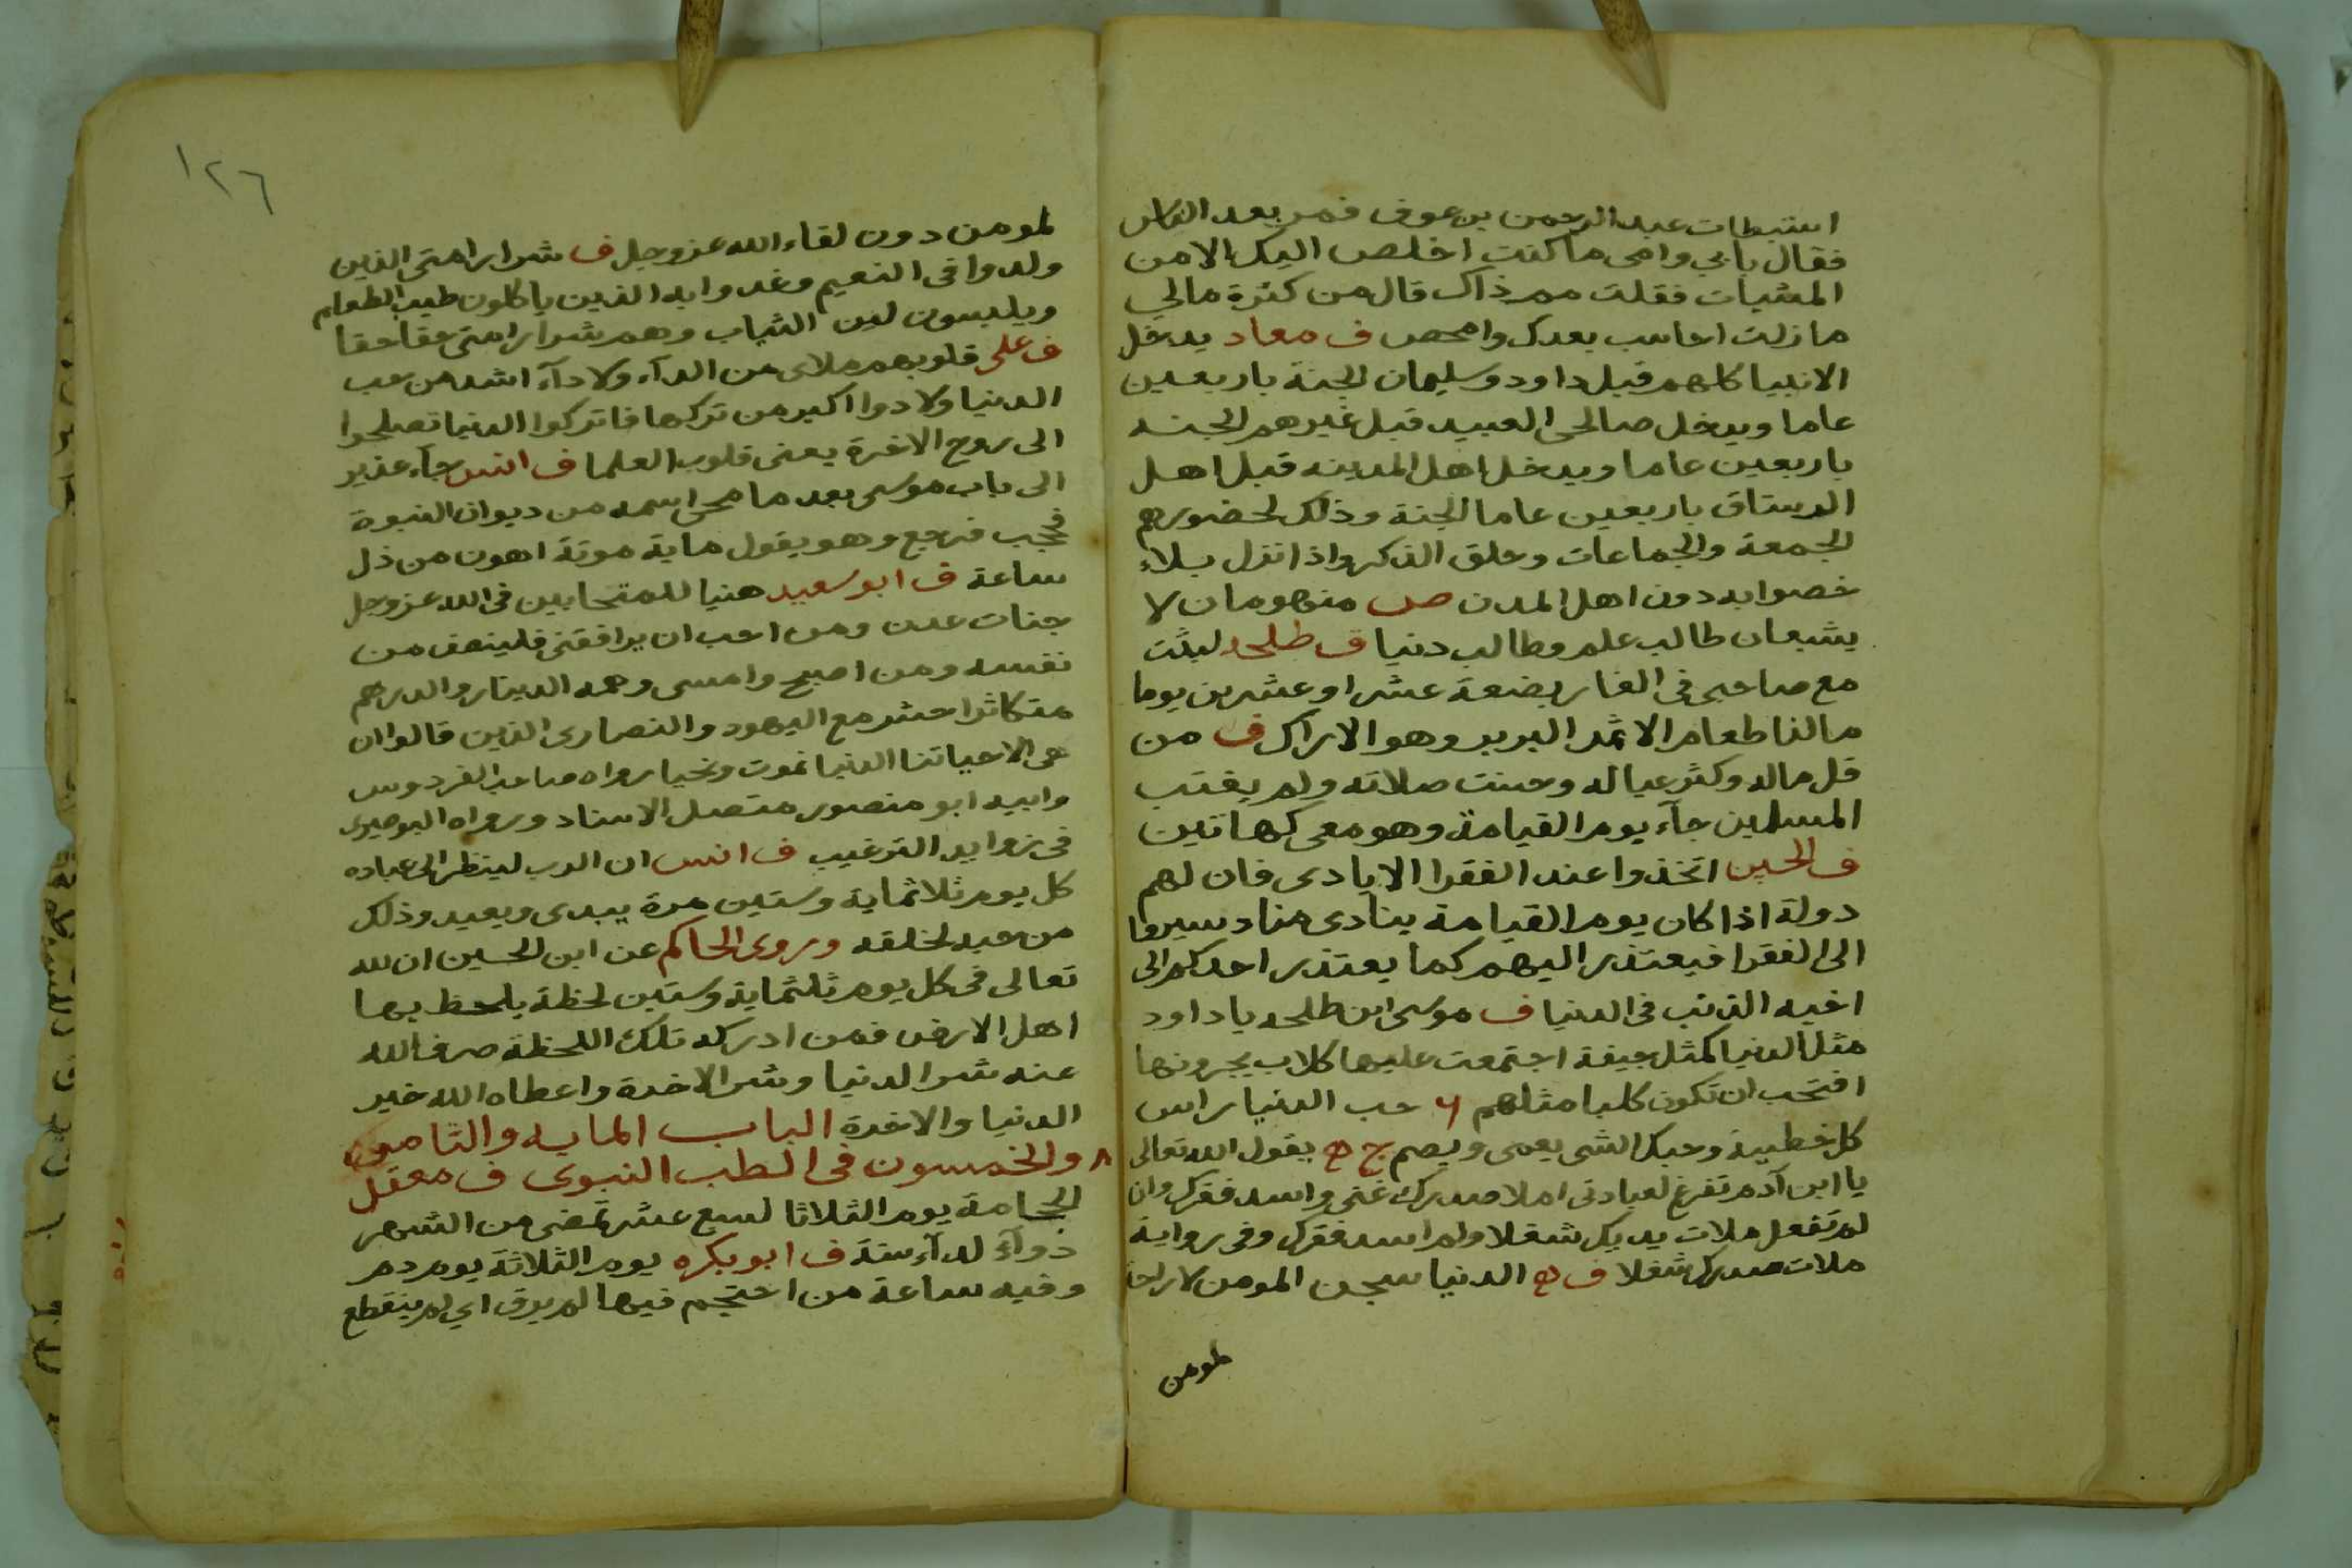 استبطات عبد الرحمن بن عوف فمر بعد الناس
فقال بابي وامي ما كنت اخلص اليك الا من
المشيات فقلت مم ذاك قال من كثرة مالي
ما زلت احاسب بعدك وامحص ف معاد يدخل
الانبيا كلهم قبل داود وسليمان الجنة باربعين
عاما ويدخل صالحي العبيد قبل غيرهم الجنه
باربعين عاما ويدخل اهل المدينه قبل اهل
الرستاق باربعين عاما الجنة وذلك لحضورهم
الجمعة والجماعات وحلق الذكر واذا نزل بلاء
خصوا به دون اهل المدن ص منهومان لا
يشبعان طالب علم وطالب دنيا ف طلحه لبثت
مع صاحبي في الغار بضعة عشر او عشرين يوما
ما لنا طعام الا ثمر البرير وهو الاراك ف من
قل ماله وكثر عياله وحسنت صلاته ولم يغتب
المسلمين جآء يوم القيامة وهو معي كهاتين
ف الحسين اتخذوا عند الفقرا الايادي فان لهم
دولة اذا كان يوم القيامة ينادى مناد سيروا
الى الفقرا فيعتذر اليهم كما يعتذر احدكم الى
اخيه الذنب في الدنيا ف موسى ابن طلحه يا داود
مثل الدنيا كمثل جيفة اجتمعت عليها كلاب يجرونها
افتحب ان تكون كلبا مثلهم حب الدنيا راس
كل خطيية وحبك الشى يعمى ويصم ج ه يقول الله تعالى
يا ابن آدم تفرغ لعبادتى املا صدرك غنى واسد فقرك وان
لم تفعل ملات يديك شغلا ولم اسد فقرك وفى رواية
ملات صدرك شغلا ف ه الدنيا سجن المومن لا راحة
لمومن
١٢٦
لمومن دون لقاء الله عز وجل ف شرار امتى الذين
ولدوا فى النعيم وغدوا به الذين ياكلون طيب الطعام
ويلبسون لين الثياب وهم شرار امتى حقا حقا
ف على قلوبهم ملاى من الدآء ولا دآء اشد من حب
الدنيا ولا دوا اكبر من تركها فاتركوا الدنيا تصلحوا
الى روح الاخرة يعنى قلوب العلما ف انس جآء عزير
الى باب موسى بعد ما محى اسمه من ديوان النبوة
فحجب فرجع وهو يقول ماية موتة اهون من ذل
ساعة ف ابو سعيد هنيا للمتحابين فى الله عز وجل
جنات عدن ومن احب ان يرافقنى فلينصف من
نفسه ومن اصبح وامسى وهمه الدينار والدرهم
متكاثرا حشر مع اليهود والنصارى الذين قالوا ان
هى الا حياتنا الدنيا نموت ونحيا رواه صاحب الفردوس
وابيه ابو منصور متصل الاسناد ورواه البوصيرى
فى زوايد الترغيب ف انس ان الرب لينظر الى عباده
كل يوم ثلاثماية وستين مرة يبدى ويعيد وذلك
من حبه لخلقه وروى الحاكم عن ابن الحسين ان لله
تعالى فى كل يوم ثلثماية وستين لحظة يلحظ بها
اهل الارض فمن ادركه تلك اللحظة صرف الله
عنه شر الدنيا وشر الاخرة واعطاه الله خير
الدنيا والاخرة الباب المايه والثامن
والخمسون فى الطب النبوى ف معقل
الحجامة يوم الثلاثا لسبع عشر تمضى من الشهر
دوآء لدآء سنة ف ابو بكره يوم الثلاثة يوم دم
وفيه ساعة من احتجم فيها لم يرق اي لم ينقطع